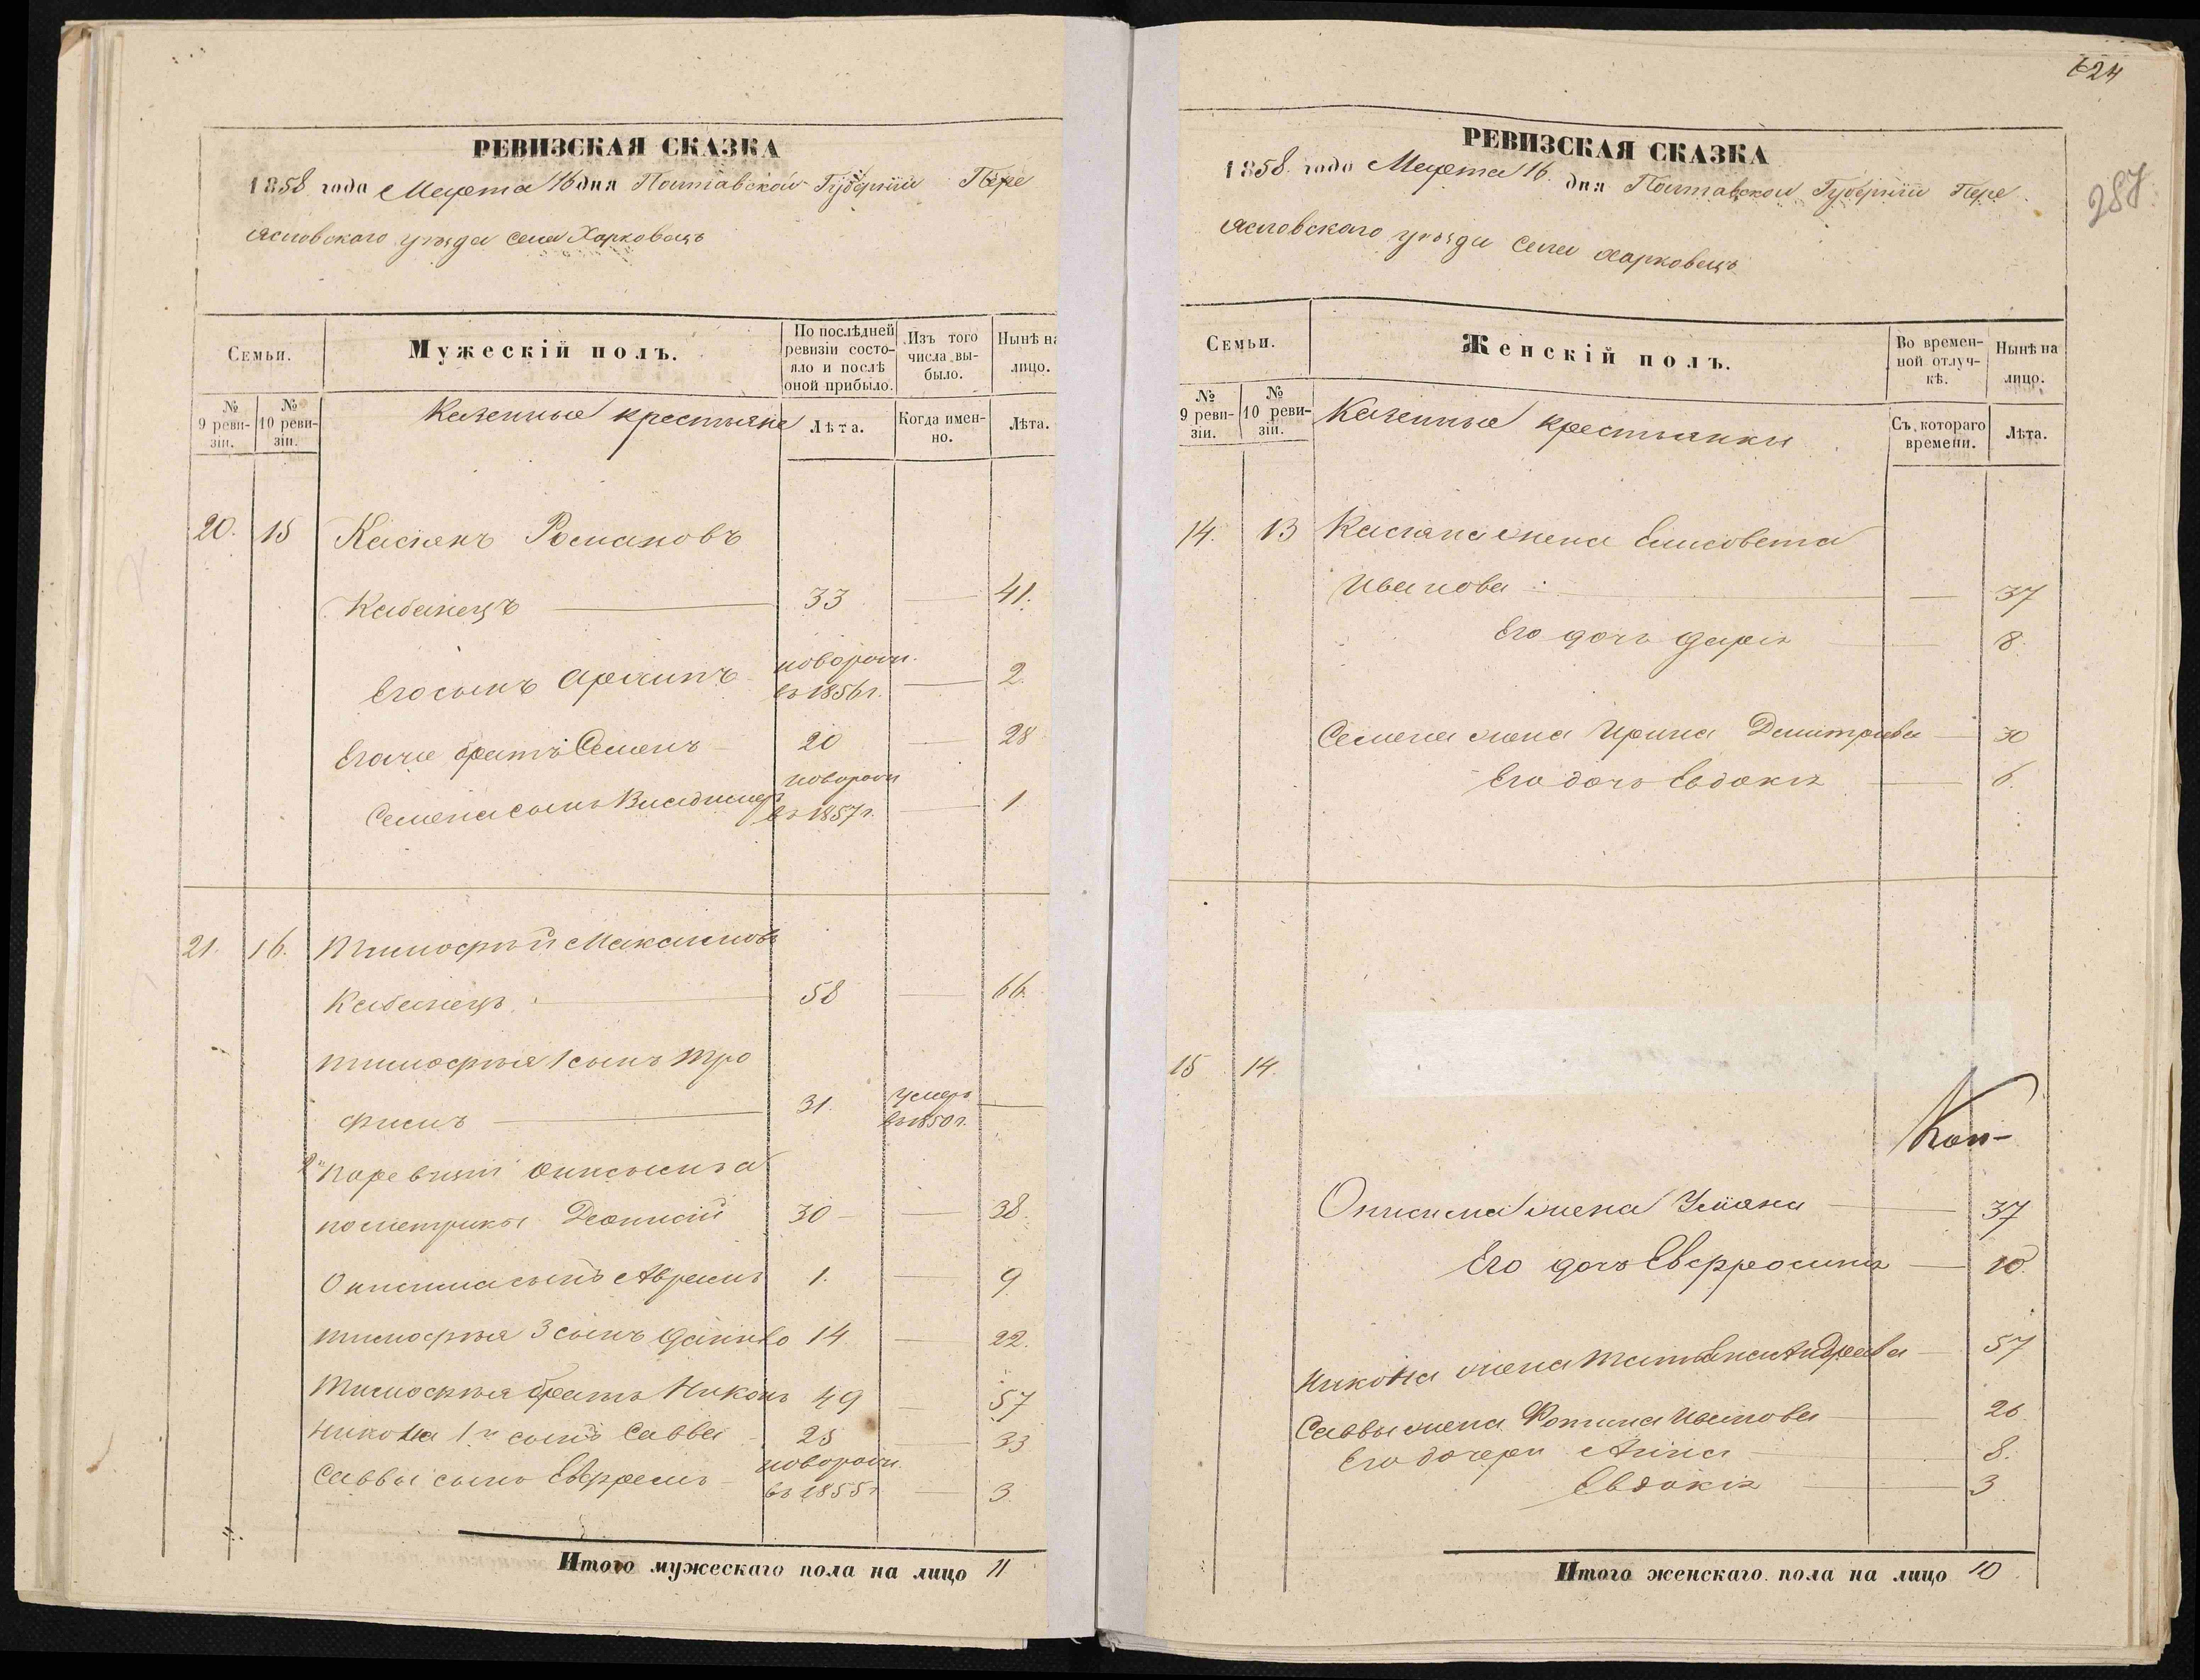 РЕВИЗСКАЯ СКАЗКА
1858 года Марта 16 дня Полтавской Губерніи Пере
ясловскаго уѣзда села Харковецъ
Семьи.
Мужескій полъ.
По послѣдней ревизіи состояло и послѣ оной прибыло.
Изъ того числа выбыло.
Нынѣ на лицо.
№ 9 ревизіи.
№ 10 ревизіи.
Казенные крестьяне
Лѣта.
Когда именно.
Лѣта.
20. 15 Касіянъ Романовъ
Кабанецъ 33 41.
Его сынъ Архипъ новорожд. въ 1856 г. 2.
Егоже братъ Семенъ 20 28
Семена сынъ Владимеръ новорожд въ 1857 г. 1
21. 16. Тимофѣй Максимовъ
Кабанецъ 58 66.
Тимофѣя 1 сынъ Тро
фимъ 31. Умеръ въ 1850 г.
2й По ревизіи Онисимъ а
по метрикѣ Деонисій 30 38.
Онисима сынъ Аврамъ 1. 9
Тимофѣя 3 сынъ Данило 14 22.
Тимофѣя братъ Никонъ 49 57
Никона 1й сынъ Савва 25 33
Саввы сынъ Евфремъ новорожд. въ 1855 г 3.
Итого мужескаго пола на лицо 11
624
287.
РЕВИЗСКАЯ СКАЗКА
1858. года Марта 16. дня Полтавской Губерніи Пере
ясловскаго уѣзда села Харковецъ
Семьи.
Женскій полъ.
Во временной отлучкѣ.
Нынѣ на лицо.
№ 9 ревизіи.
№ 10 ревизіи.
Казенные крестьянки
Съ котораго времени.
Лѣта.
14. 13 Касіяна жена Елисовета
Иванова 37
Его дочь Дарія 8.
Семена жена Ирина Дмитріева 30
Его дочь Евдокія 6.
15 14.
Онисима жена Уліяна 37
Его дочь Евфросинія 10.
Никона жена Татіяна Андреева 57
Саввы жена Фотина Иванова 26
Его дочери Анна 8.
Евдокія 3
Итого женскаго пола на лицо 10